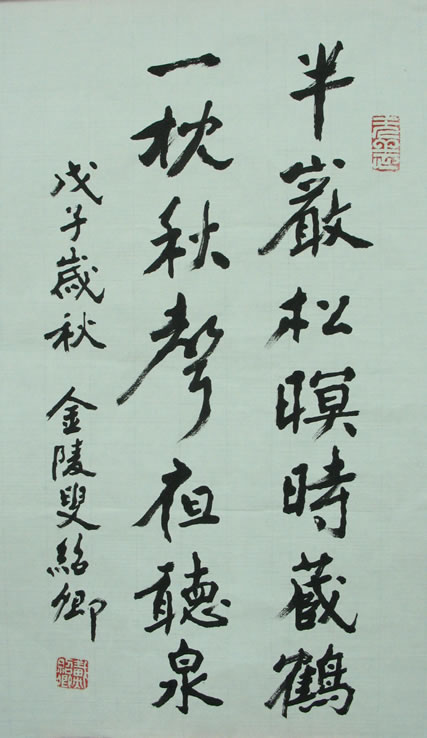 半巖松暝時蔵鶴
一枕秋聲夜聽泉
戊子歲秋 金陵叟紹卿